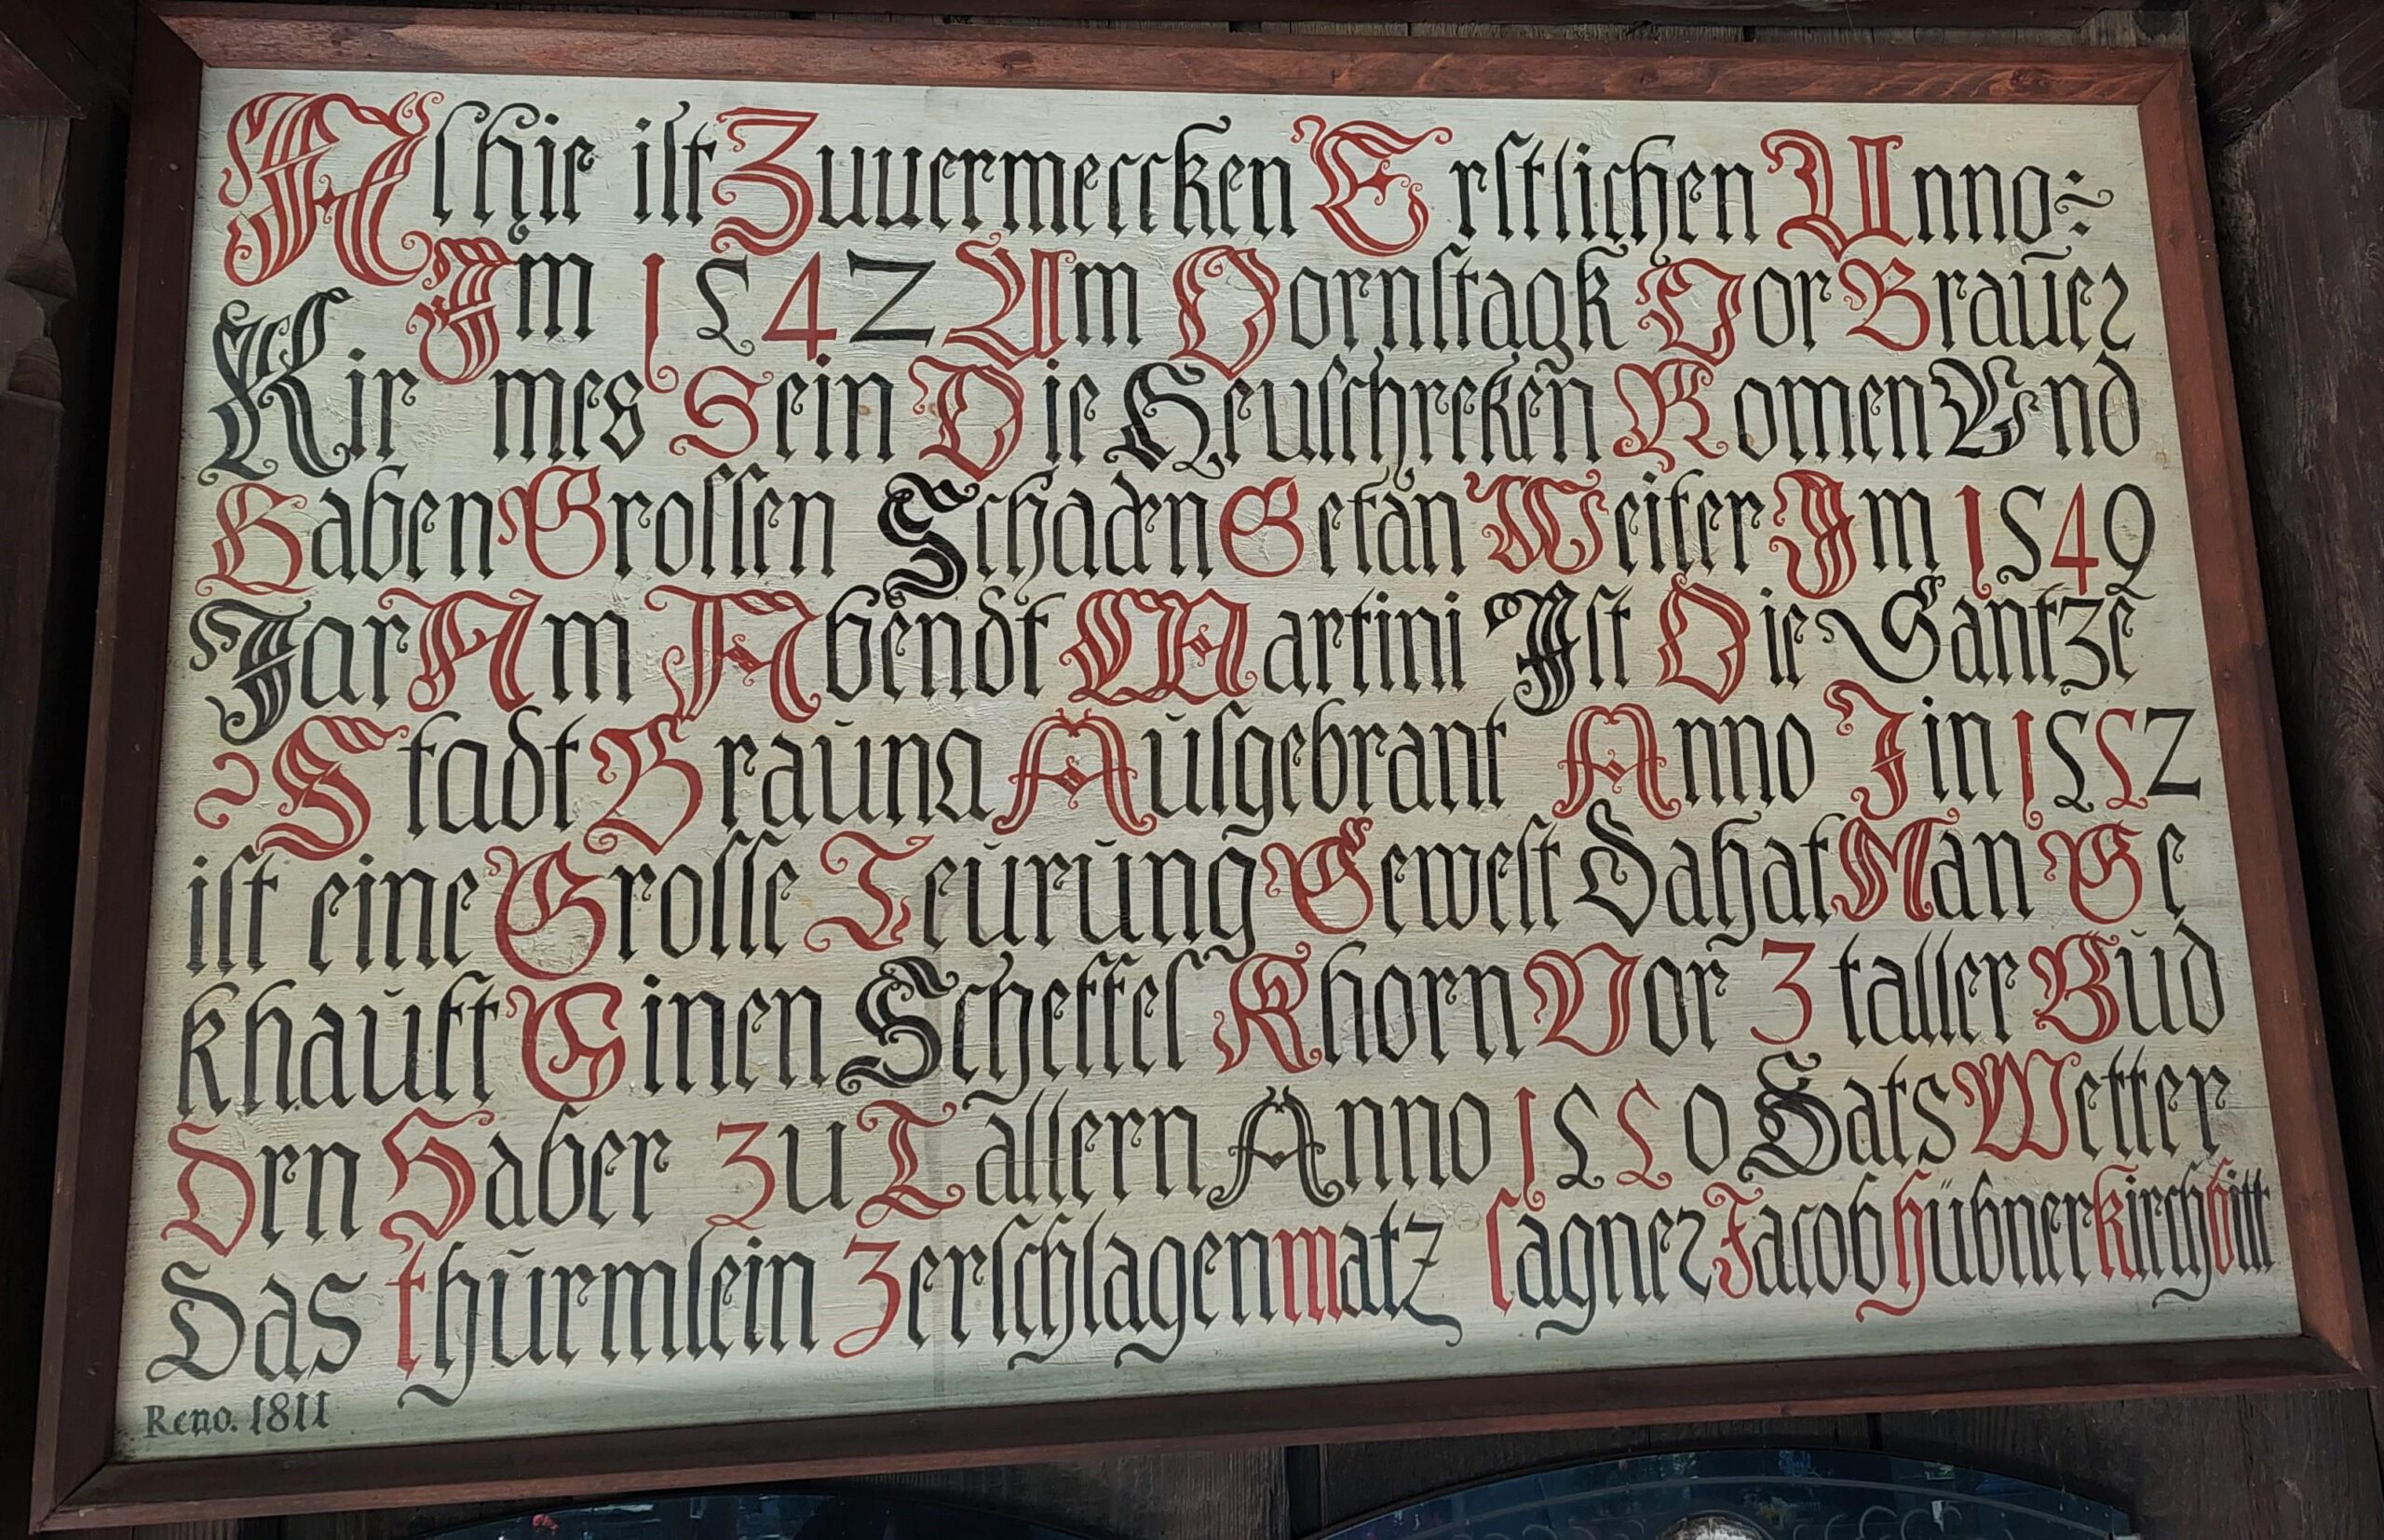 Alhie ist Zuuermercken Erstlichen Anno:~
Im 1542 Am Dornstagk Vor Brauer
Kirmes Sein Die Heuschreken Komen Vnd
Haben Grossen Schaden Getan Weiter Im 1549
Jar Am Abendt Martini Ist Die Gantze
Stadt Brauna Ausgebrant Anno Jin 1552
ist eine Grosse Teurung Gewest Dahat Man Ge
khauft Einen Scheffel Khorn Vor 3 taller Vud
Den Haber zu Tallern Anno 1550 Hats Wetter
Das thürmlein Zerschlagen matz lagner Jacob hübner kirchbitt
Reno. 1811